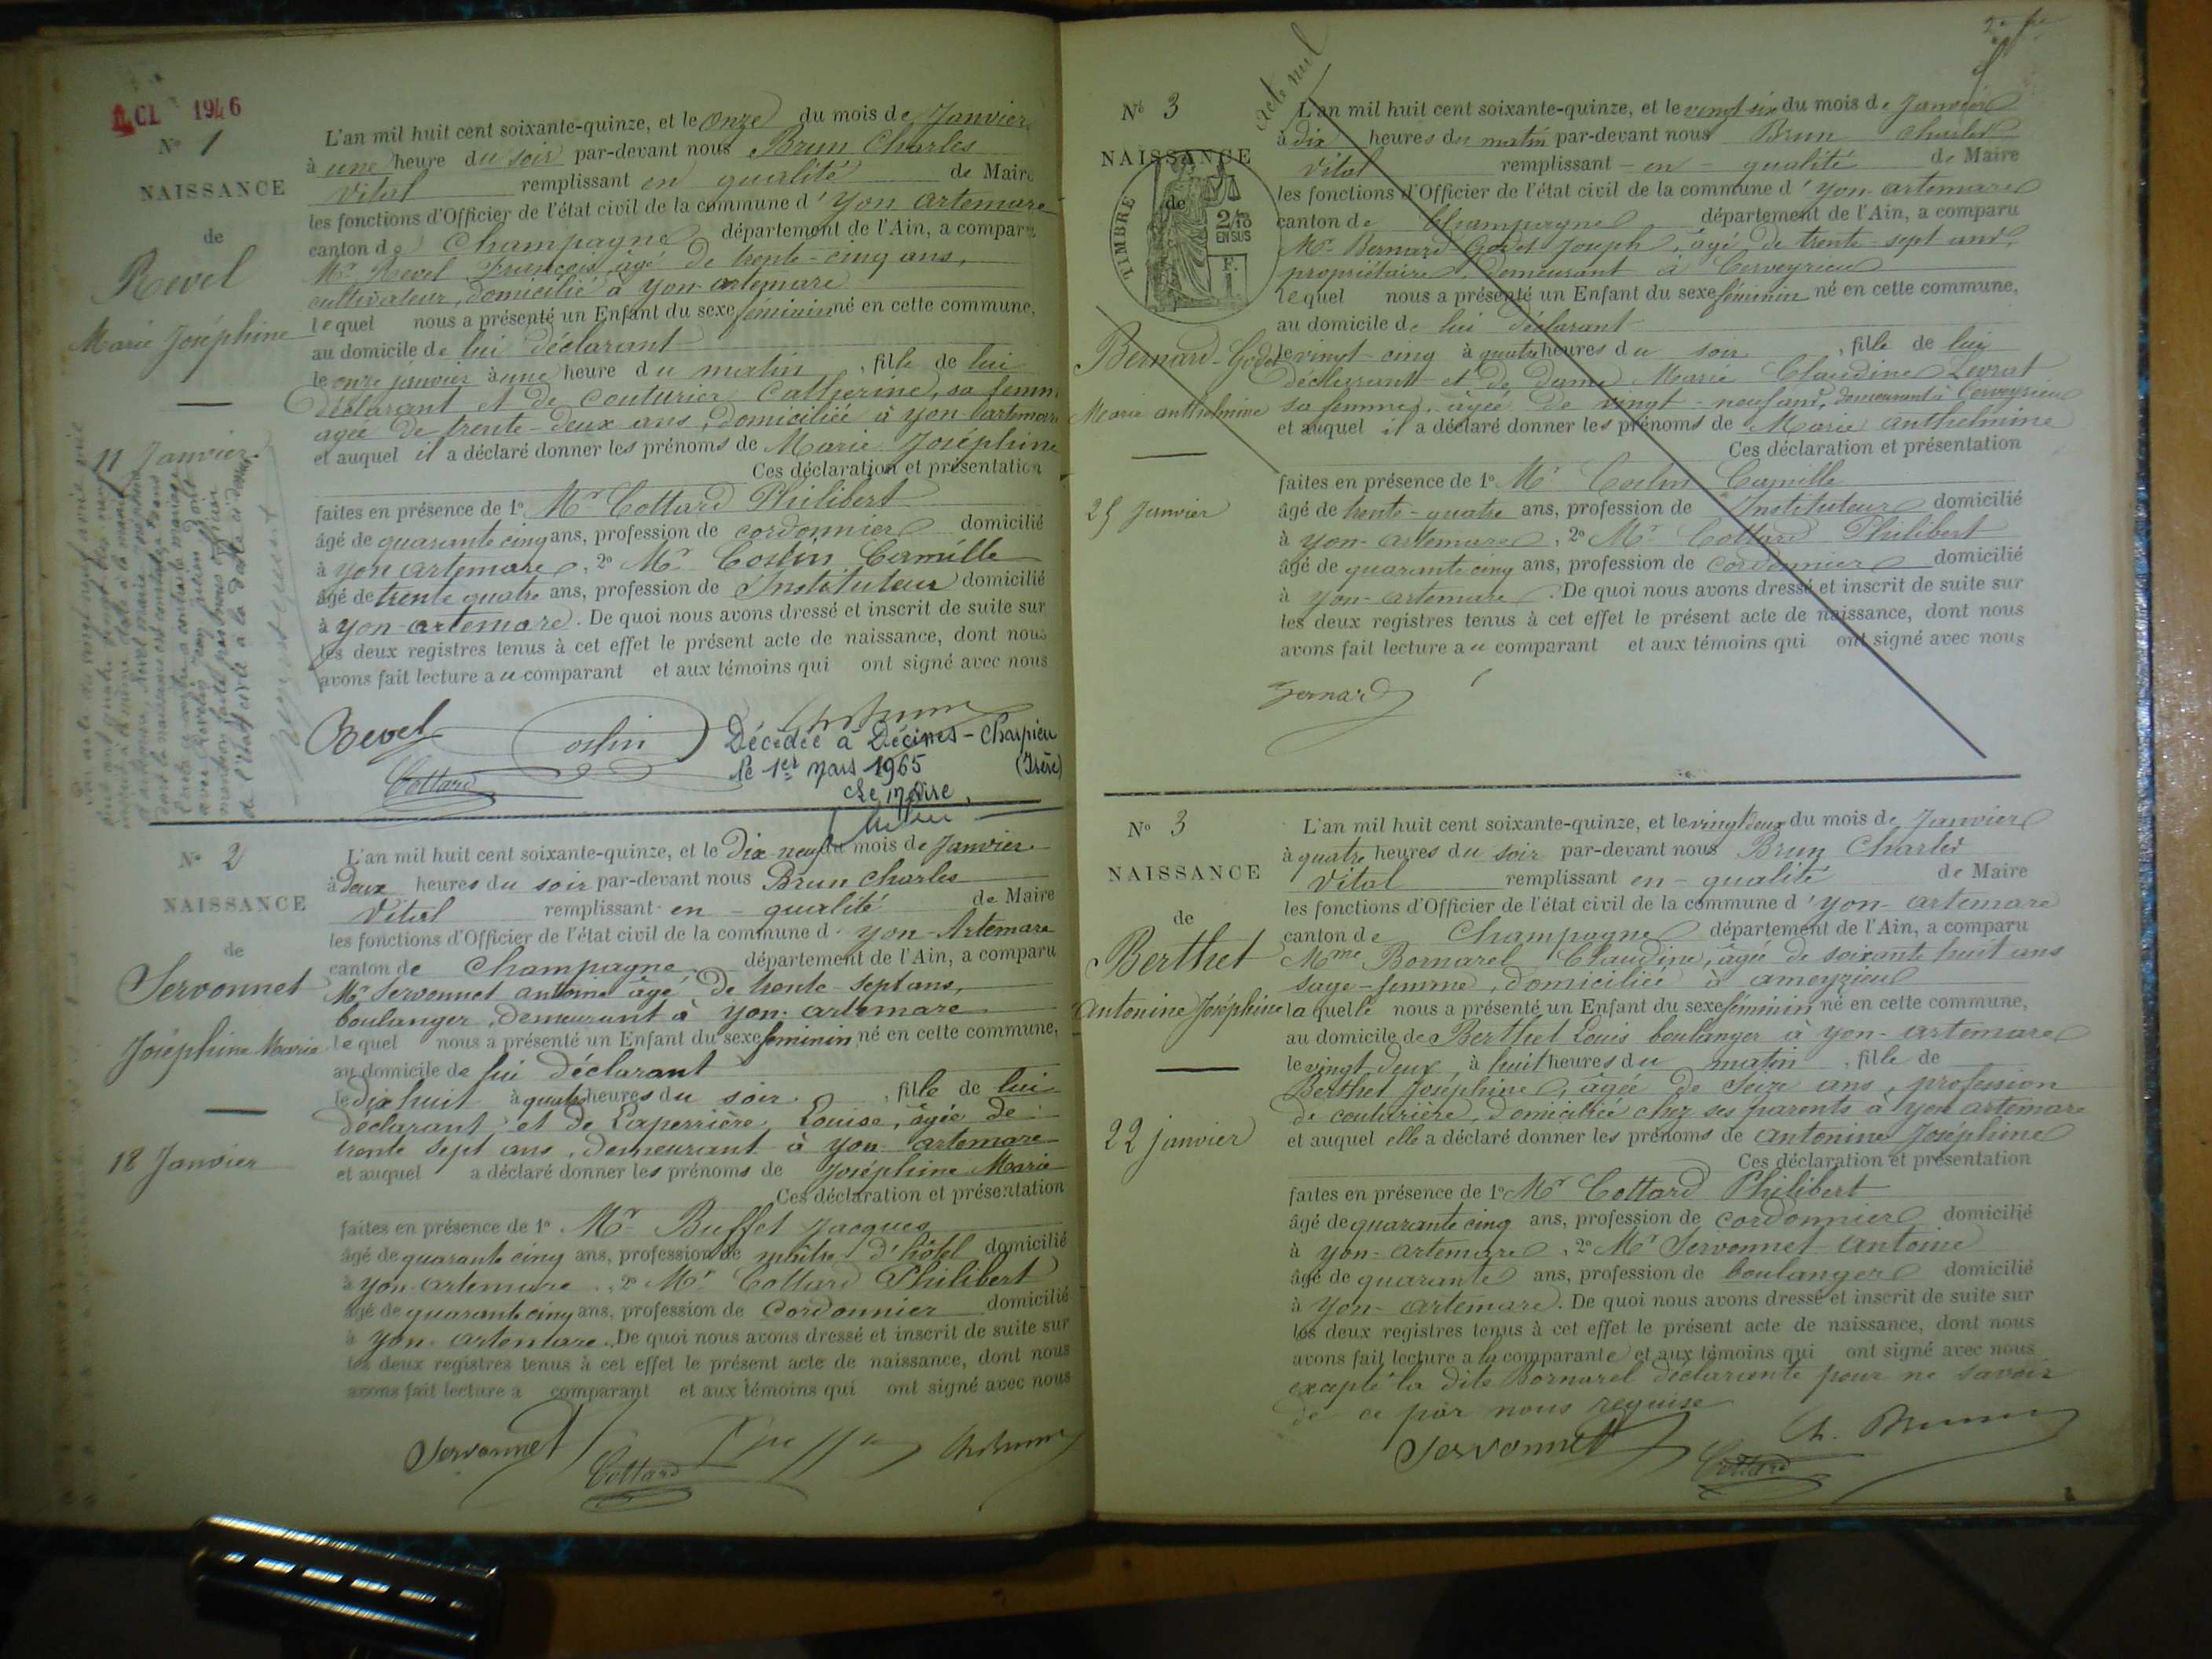 ACL 1946
N° 1
NAISSANCE
de
Revel
Marie Joséphine
11 Janvier
L'an mil huit cent soixante-quinze, et le onze du mois de Janvier
à une heure du soir par-devant nous Brun Charles
Vital remplissant en qualité de Maire
les fonctions d'Officier de l'état civil de la commune d'yon artemare
canton de Champagne département de l'Ain, a comparu
Mr Revel François, âgé de trente-cinq ans,
cultivateur, domicilié à yon-artemare
lequel nous a présenté un Enfant du sexe féminin né en cette commune,
au domicile de lui déclarant
le onze janvier à une heure du matin, fille de lui
déclarant et de Couturier Catherine, sa femme
agée de trente-deux ans, domiciliée à yon-artemare
et auquel il a déclaré donner les prénoms de Marie Joséphine
Ces déclaration et présentation
faites en présence de 1° Mr Cottard Philibert
âgé de quarante cinq ans, profession de cordonnier domicilié
à yon artemare, 2° Mr Coslin Camille
âgé de trente quatre ans, profession de Instituteur domicilié
à yon-artemare. De quoi nous avons dressé et inscrit de suite sur
les deux registres tenus à cet effet le présent acte de naissance, dont nous
avons fait lecture au comparant et aux témoins qui ont signé avec nous
Revel Coslin
Cottard
Décédée à Décines-Charpieu
le 1er Mars 1965 (Isère)
Le Maire,
N° 2
NAISSANCE
de
Servonnet
Joséphine Marie
18 Janvier
L'an mil huit cent soixante-quinze, et le Dix-neuf du mois de Janvier
à Deux heures du soir par-devant nous Brun Charles
Vital remplissant en qualité de Maire
les fonctions d'Officier de l'état civil de la commune d'yon-Artemare
canton de Champagne département de l'Ain, a comparu
Mr Servonnet antoine âgé de trente-sept ans,
boulanger, demeurant à yon-artemare
lequel nous a présenté un Enfant du sexe féminin né en cette commune,
au domicile de lui déclarant
le Dix huit à quatre heures du soir, fille de lui
déclarant et de Laperrière Louise, âgée de
trente sept ans, demeurant à yon artemare
et auquel a déclaré donner les prénoms de Joséphine Marie
Ces déclaration et présentation
faites en présence de 1° Mr Buffet Jacques
âgé de quarante cinq ans, profession de maître d'hôtel domicilié
à yon-artemare, 2° Mr Cottard Philibert
âgé de quarante cinq ans, profession de Cordonnier domicilié
à yon-artemare. De quoi nous avons dressé et inscrit de suite sur
les deux registres tenus à cet effet le présent acte de naissance, dont nous
avons fait lecture a comparant et aux témoins qui ont signé avec nous
Servonnet
Cottard
acte nul
N° 3
NAISSANCE
de
TIMBRE
2/10
EN SUS
F.
Bernard-Godet
Marie anthelmine
25 Janvier
L'an mil huit cent soixante-quinze, et le vingt six du mois de Janvier
à dix heures du matin par-devant nous Brun Charles
Vital remplissant en qualité de Maire
les fonctions d'Officier de l'état civil de la commune d'yon-artemare
canton de Champagne département de l'Ain, a comparu
Mr Bernard Godet Joseph, âgé de trente-sept ans,
propriétaire, demeurant à Cerveyrieu
lequel nous a présenté un Enfant du sexe féminin né en cette commune,
au domicile de lui déclarant
le vingt-cinq à quatre heures du soir, fille de lui
déclarant et de dame Marie Claudine Levrat
sa femme, âgée de vingt-neuf ans, demeurant à Cerveyrieu
et auquel il a déclaré donner les prénoms de Marie anthelmine
Ces déclaration et présentation
faites en présence de 1° Mr Coslin Camille
âgé de trente-quatre ans, profession de Instituteur domicilié
à yon-artemare, 2° Mr Cottard Philibert
âgé de quarante cinq ans, profession de Cordonnier domicilié
à yon-artemare. De quoi nous avons dressé et inscrit de suite sur
les deux registres tenus à cet effet le présent acte de naissance, dont nous
avons fait lecture au comparant et aux témoins qui ont signé avec nous
Bernard
N° 3
NAISSANCE
de
Berthet
Antonine Joséphine
22 janvier
L'an mil huit cent soixante-quinze, et le vingt deux du mois de Janvier
à quatre heures du soir par-devant nous Brun Charles
Vital remplissant en qualité de Maire
les fonctions d'Officier de l'état civil de la commune d'yon-artemare
canton de Champagne département de l'Ain, a comparu
Mme Bornarel Claudine, âgée de soixante huit ans
sage-femme, domiciliée à ameyzieu
laquelle nous a présenté un Enfant du sexe féminin né en cette commune,
au domicile de Berthet Louis boulanger à yon-artemare
le vingt deux, à huit heures du matin, fille de
Berthet Joséphine, âgée de seize ans, profession
de couturière, domiciliée chez ses parents à yon artemare
et auquel elle a déclaré donner les prénoms de antonine Joséphine
Ces déclaration et présentation
faites en présence de 1° Mr Cottard Philibert
âgé de quarante cinq ans, profession de cordonnier domicilié
à yon-artemare, 2° Mr Servonnet Antoine
âgé de quarante ans, profession de boulanger domicilié
à yon-artemare. De quoi nous avons dressé et inscrit de suite sur
les deux registres tenus à cet effet le présent acte de naissance, dont nous
avons fait lecture a la comparante et aux témoins qui ont signé avec nous
excepté la dite Bornarel déclarante pour ne savoir
de ce par nous requise
Servonnet Ch. Brun
Cottard